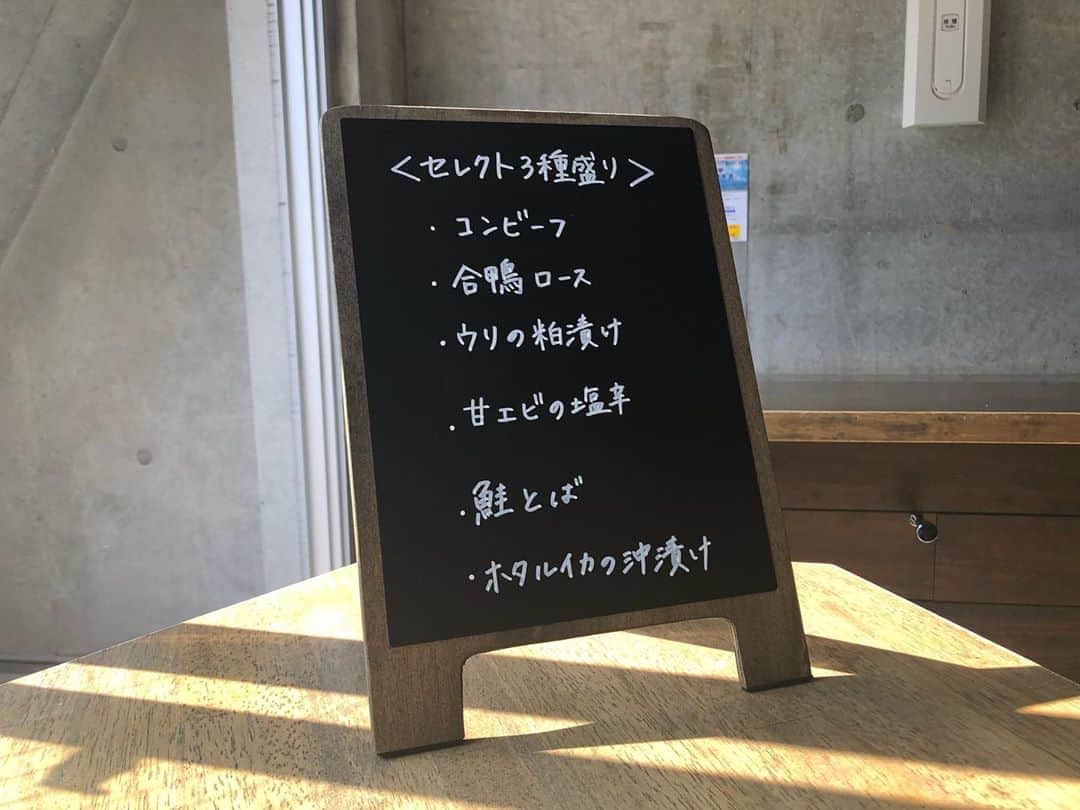 ＜セレクト3種盛り＞
・コンビーフ
・合鴨ロース
・ウリの粕漬け
・甘エビの塩辛
・鮭とば
・ホタルイカの沖漬け